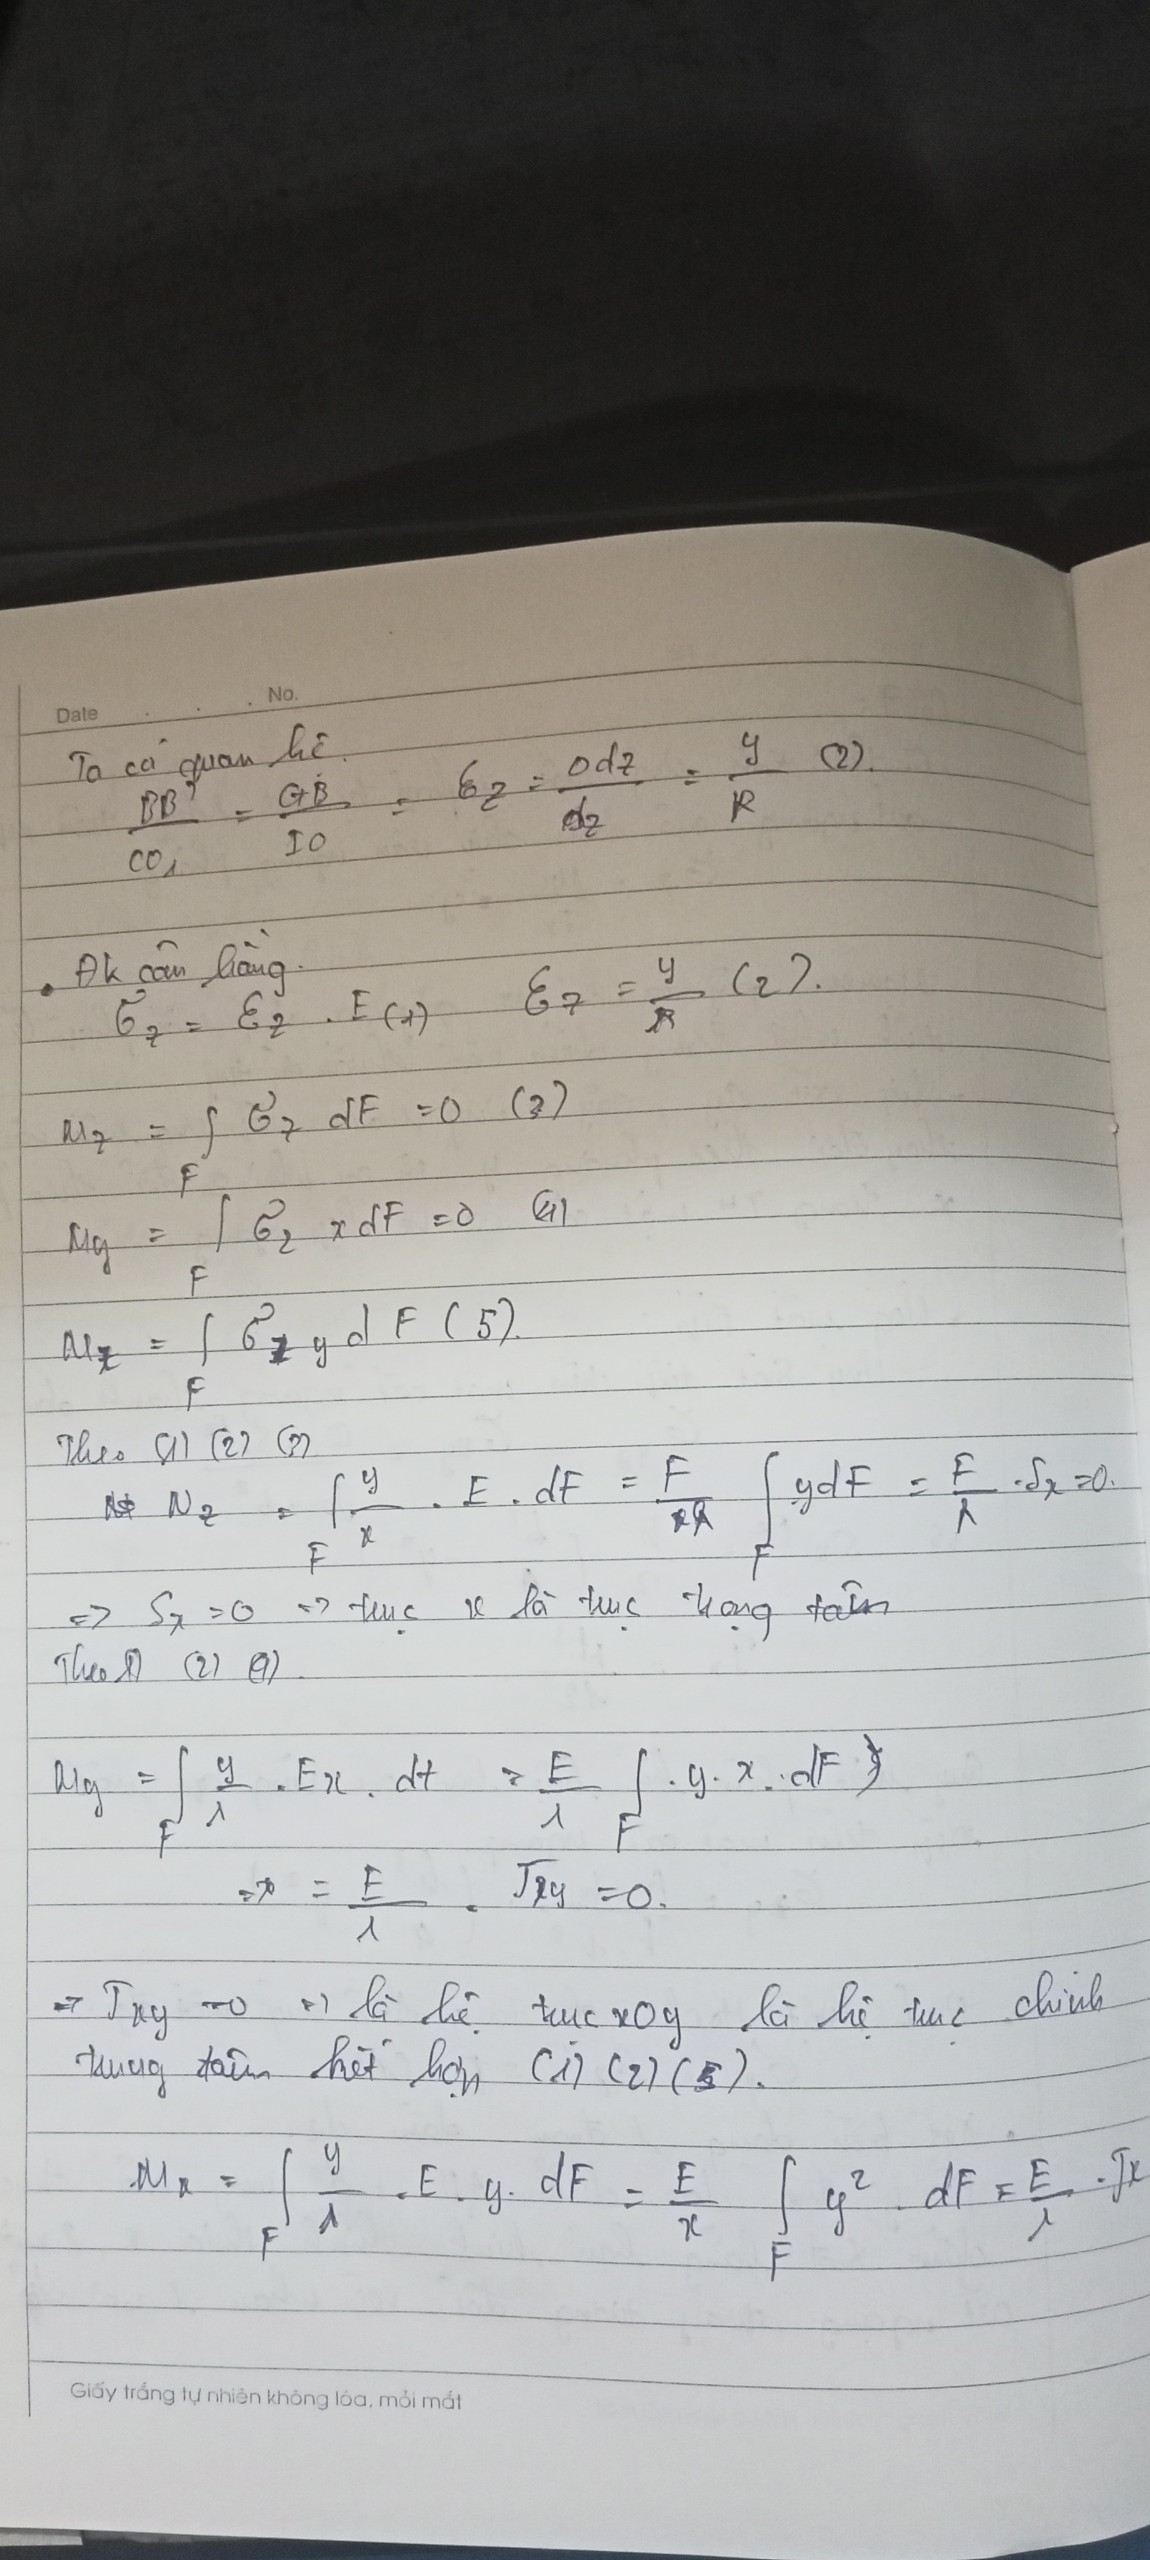 Date . . . No.
Ta có quan hệ.
BB' / CO₁ = GB / IO = Ɛz = Δdz / dz = y / R (2).
• Đk cân bằng.
σz = Ɛz . E (1)   Ɛz = y / R (2).
Nz = ∫F σz dF = 0 (3)
My = ∫F σz x dF = 0 (4)
Mx = ∫F σz y dF (5).
Theo (1) (2) (3)
Nz = ∫F y / x . E . dF = E / R ∫F y dF = E / R . Sx = 0.
=> Sx = 0 => trục x là trục trọng tâm
Theo (1) (2) (4).
My = ∫F y / λ . Ex . dt = E / λ ∫F . y . x . dF
= E / λ . Jxy = 0.
=> Jxy = 0 => là hệ trục xOy là hệ trục chính
trung tâm kết hợp (1) (2) (5).
Mx = ∫F y / λ . E . y . dF = E / x ∫F y² . dF = E / λ . Jx
Giấy trắng tự nhiên không lóa, mỏi mắt